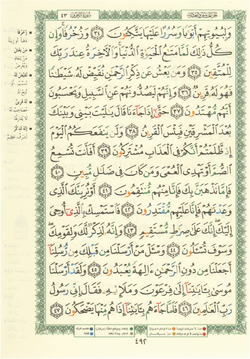 وَلِبُيُوتِهِمْ أَبْوَٰبًا وَسُرُرًا عَلَيْهَا يَتَّكِـُٔونَ ٣٤ وَزُخْرُفًا وَإِن
كُلُّ ذَٰلِكَ لَمَّا مَتَٰعُ ٱلْحَيَوٰةِ ٱلدُّنْيَا وَٱلْـَٔاخِرَةُ عِندَ رَبِّكَ
لِلْمُتَّقِينَ ٣٥ وَمَن يَعْشُ عَن ذِكْرِ ٱلرَّحْمَٰنِ نُقَيِّضْ لَهُۥ شَيْطَٰنًا
فَهُوَ لَهُۥ قَرِينٌ ٣٦ وَإِنَّهُمْ لَيَصُدُّونَهُمْ عَنِ ٱلسَّبِيلِ وَيَحْسَبُونَ
أَنَّهُم مُّهْتَدُونَ ٣٧ حَتَّىٰٓ إِذَا جَآءَنَا قَالَ يَٰلَيْتَ بَيْنِى وَبَيْنَكَ
بُعْدَ ٱلْمَشْرِقَيْنِ فَبِئْسَ ٱلْقَرِينُ ٣٨ وَلَن يَنفَعَكُمُ ٱلْيَوْمَ
إِذ ظَّلَمْتُمْ أَنَّكُمْ فِى ٱلْعَذَابِ مُشْتَرِكُونَ ٣٩ أَفَأَنتَ تُسْمِعُ
ٱلصُّمَّ أَوْ تَهْدِى ٱلْعُمْىَ وَمَن كَانَ فِى ضَلَٰلٍ مُّبِينٍ ٤٠
فَإِمَّا نَذْهَبَنَّ بِكَ فَإِنَّا مِنْهُم مُّنتَقِمُونَ ٤١ أَوْ نُرِيَنَّكَ ٱلَّذِى
وَعَدْنَٰهُمْ فَإِنَّا عَلَيْهِم مُّقْتَدِرُونَ ٤٢ فَٱسْتَمْسِكْ بِٱلَّذِىٓ أُوحِىَ
إِلَيْكَ إِنَّكَ عَلَىٰ صِرَٰطٍ مُّسْتَقِيمٍ ٤٣ وَإِنَّهُۥ لَذِكْرٌ لَّكَ وَلِقَوْمِكَ
وَسَوْفَ تُسْـَٔلُونَ ٤٤ وَسْـَٔلْ مَنْ أَرْسَلْنَا مِن قَبْلِكَ مِن رُّسُلِنَآ
أَجَعَلْنَا مِن دُونِ ٱلرَّحْمَٰنِ ءَالِهَةً يُعْبَدُونَ ٤٥ وَلَقَدْ أَرْسَلْنَا
مُوسَىٰ بِـَٔايَٰتِنَآ إِلَىٰ فِرْعَوْنَ وَمَلَإِي۟هِۦ فَقَالَ إِنِّى رَسُولُ
رَبِّ ٱلْعَٰلَمِينَ ٤٦ فَلَمَّا جَآءَهُم بِـَٔايَٰتِنَآ إِذَا هُم مِّنْهَا يَضْحَكُونَ ٤٧
٤٩٢